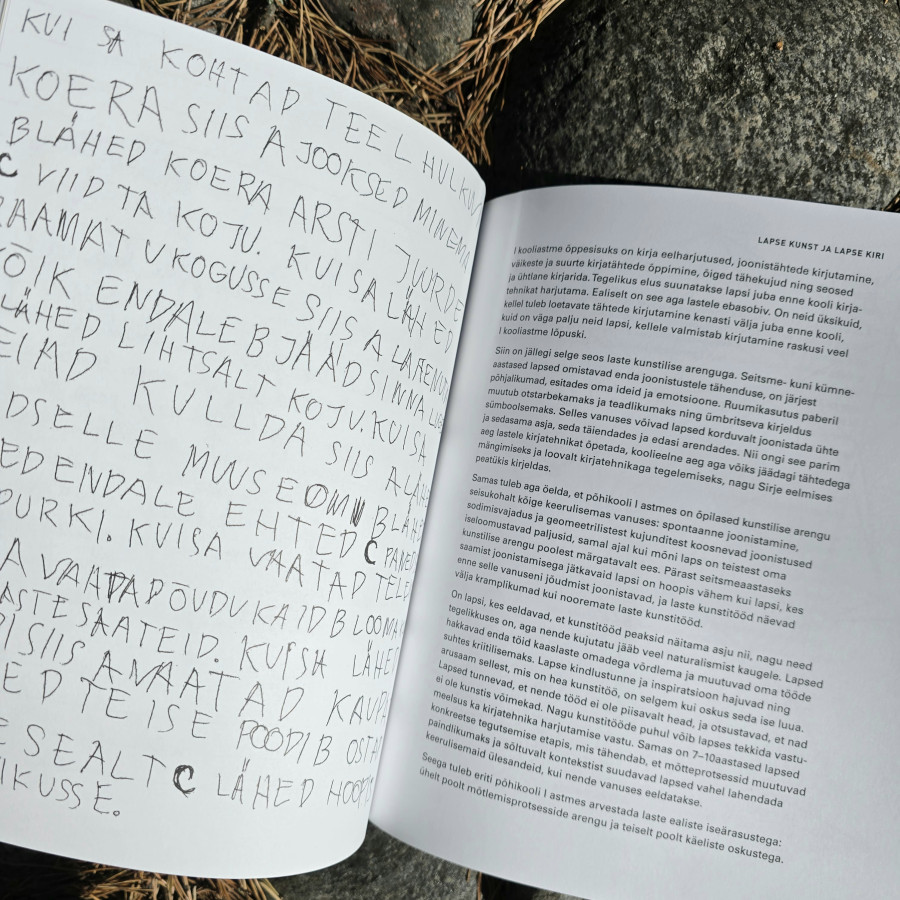 KUI SA KOHTAD TEEL HULKUV
KOERA SIIS A JOOKSED MINEMA
BLÄHED KOERA ARSTI JUURDE
C VIID TA KOJU. KUI SA LÄHED
RAAMATUKOGUSSE SIIS A LAENUD
KÕIK ENDALE B JÄÄD SINNA
LÄHED LIHTSALT KOJU. KUI SA
KULLDA SIIS A LÄHED
MUUSEOMI B LÄHED
ENDALE EHTED C PANED
PURKI. KUI SA VAATAD TELE
A VAATAD ÕUDUKAID B LOOMA
LASTESAATEID. KUI SA LÄHED
SIIS A VAATAD KAUPA
TEISE POODI B OSTAD
SEALT C LÄHED HOOPIS
LAPSE KUNST JA LAPSE KIRI
I kooliastme õppesisuks on kirja eelharjutused, joonistähtede kirjutamine,
väikeste ja suurte kirjatähtede õppimine, õiged tähekujud ning seosed
ja ühtlane kirjarida. Tegelikus elus suunatakse lapsi juba enne kooli kirja-
tehnikat harjutama. Ealiselt on see aga lastele ebasobiv. On neid üksikuid,
kellel tuleb loetavate tähtede kirjutamine kenasti välja juba enne kooli,
kuid on väga palju neid lapsi, kellele valmistab kirjutamine raskusi veel
I kooliastme lõpuski.
Siin on jällegi selge seos laste kunstilise arenguga. Seitsme- kuni kümne-
aastased lapsed omistavad enda joonistustele tähenduse, on järjest
põhjalikumad, esitades oma ideid ja emotsioone. Ruumikasutus paberil
muutub otstarbekamaks ja teadlikumaks ning ümbritseva kirjeldus
sümboolsemaks. Selles vanuses võivad lapsed korduvalt joonistada ühte
ja sedasama asja, seda täiendades ja edasi arendades. Nii ongi see parim
aeg lastele kirjatehnikat õpetada, koolieelne aeg aga võiks jäädagi tähtedega
mängimiseks ja loovalt kirjatehnikaga tegelemiseks, nagu Sirje eelmises
peatükis kirjeldas.
Samas tuleb aga öelda, et põhikooli I astmes on õpilased kunstilise arengu
seisukohalt kõige keerulisemas vanuses: spontaanne joonistamine,
sodimisvajadus ja geomeetrilistest kujunditest koosnevad joonistused
iseloomustavad paljusid, samal ajal kui mõni laps on teistest oma
kunstilise arengu poolest märgatavalt ees. Pärast seitsmeaastaseks
saamist joonistamisega jätkavaid lapsi on hoopis vähem kui lapsi, kes
enne selle vanuseni jõudmist joonistavad, ja laste kunstitööd näevad
välja kramplikumad kui nooremate laste kunstitööd.
On lapsi, kes eeldavad, et kunstitööd peaksid näitama asju nii, nagu need
tegelikkuses on, aga nende kujutatu jääb veel naturalismist kaugele. Lapsed
hakkavad enda töid kaaslaste omadega võrdlema ja muutuvad oma tööde
suhtes kriitilisemaks. Lapse kindlustunne ja inspiratsioon hajuvad ning
arusaam sellest, mis on hea kunstitöö, on selgem kui oskus seda ise luua.
Lapsed tunnevad, et nende tööd ei ole piisavalt head, ja otsustavad, et nad
ei ole kunstis võimekad. Nagu kunstitööde puhul võib lapses tekkida vastu-
meelsus ka kirjatehnika harjutamise vastu. Samas on 7–10aastased lapsed
konkreetse tegutsemise etapis, mis tähendab, et mõtteprotsessid muutuvad
paindlikumaks ja sõltuvalt kontekstist suudavad lapsed vahel lahendada
keerulisemaid ülesandeid, kui nende vanuses eeldatakse.
Seega tuleb eriti põhikooli I astmes arvestada laste ealiste iseärasustega:
ühelt poolt mõtlemisprotsesside arengu ja teiselt poolt käeliste oskustega.